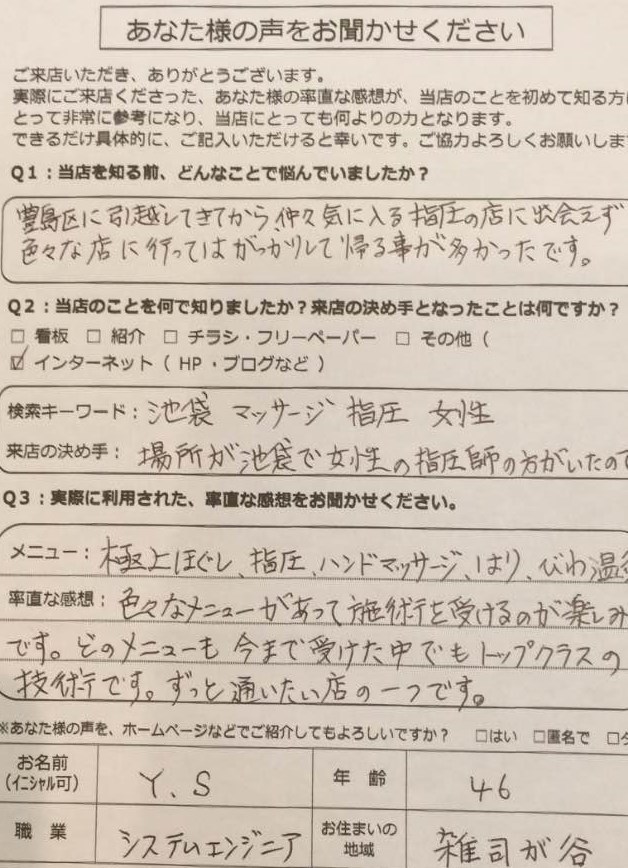 あなた様の声をお聞かせください
ご来店いただき、ありがとうございます。
実際にご来店くださった、あなた様の率直な感想が、当店のことを初めて知る方に
とって非常に参考になり、当店にとっても何よりの力となります。
できるだけ具体的に、ご記入いただけると幸いです。ご協力よろしくお願いしま
Q1:当店を知る前、どんなことで悩んでいましたか?
豊島区に引越してきてから、仲々気に入る指圧の店に出会えず
色々な店に行ってはがっかりして帰る事が多かったです。
Q2:当店のことを何で知りましたか?来店の決め手となったことは何ですか?
□ 看板 □ 紹介 □ チラシ・フリーペーパー □ その他(
☑ インターネット( HP ・ブログなど )
検索キーワード:池袋 マッサージ 指圧 女性
来店の決め手: 場所が池袋で女性の指圧師の方がいたので
Q3:実際に利用された、率直な感想をお聞かせください。
メニュー:極上ほぐし、指圧、ハンドマッサージ、はり、びわ温灸
率直な感想:色々なメニューがあって施術を受けるのが楽しみ
です。どのメニューも今まで受けた中でもトップクラスの
技術です。ずっと通いたい店の一つです。
※あなた様の声を、ホームページなどでご紹介してもよろしいですか? □はい □匿名で □
お名前(イニシャル可) Y.S 年齢 46
職業 システムエンジニア お住まいの地域 雑司が谷